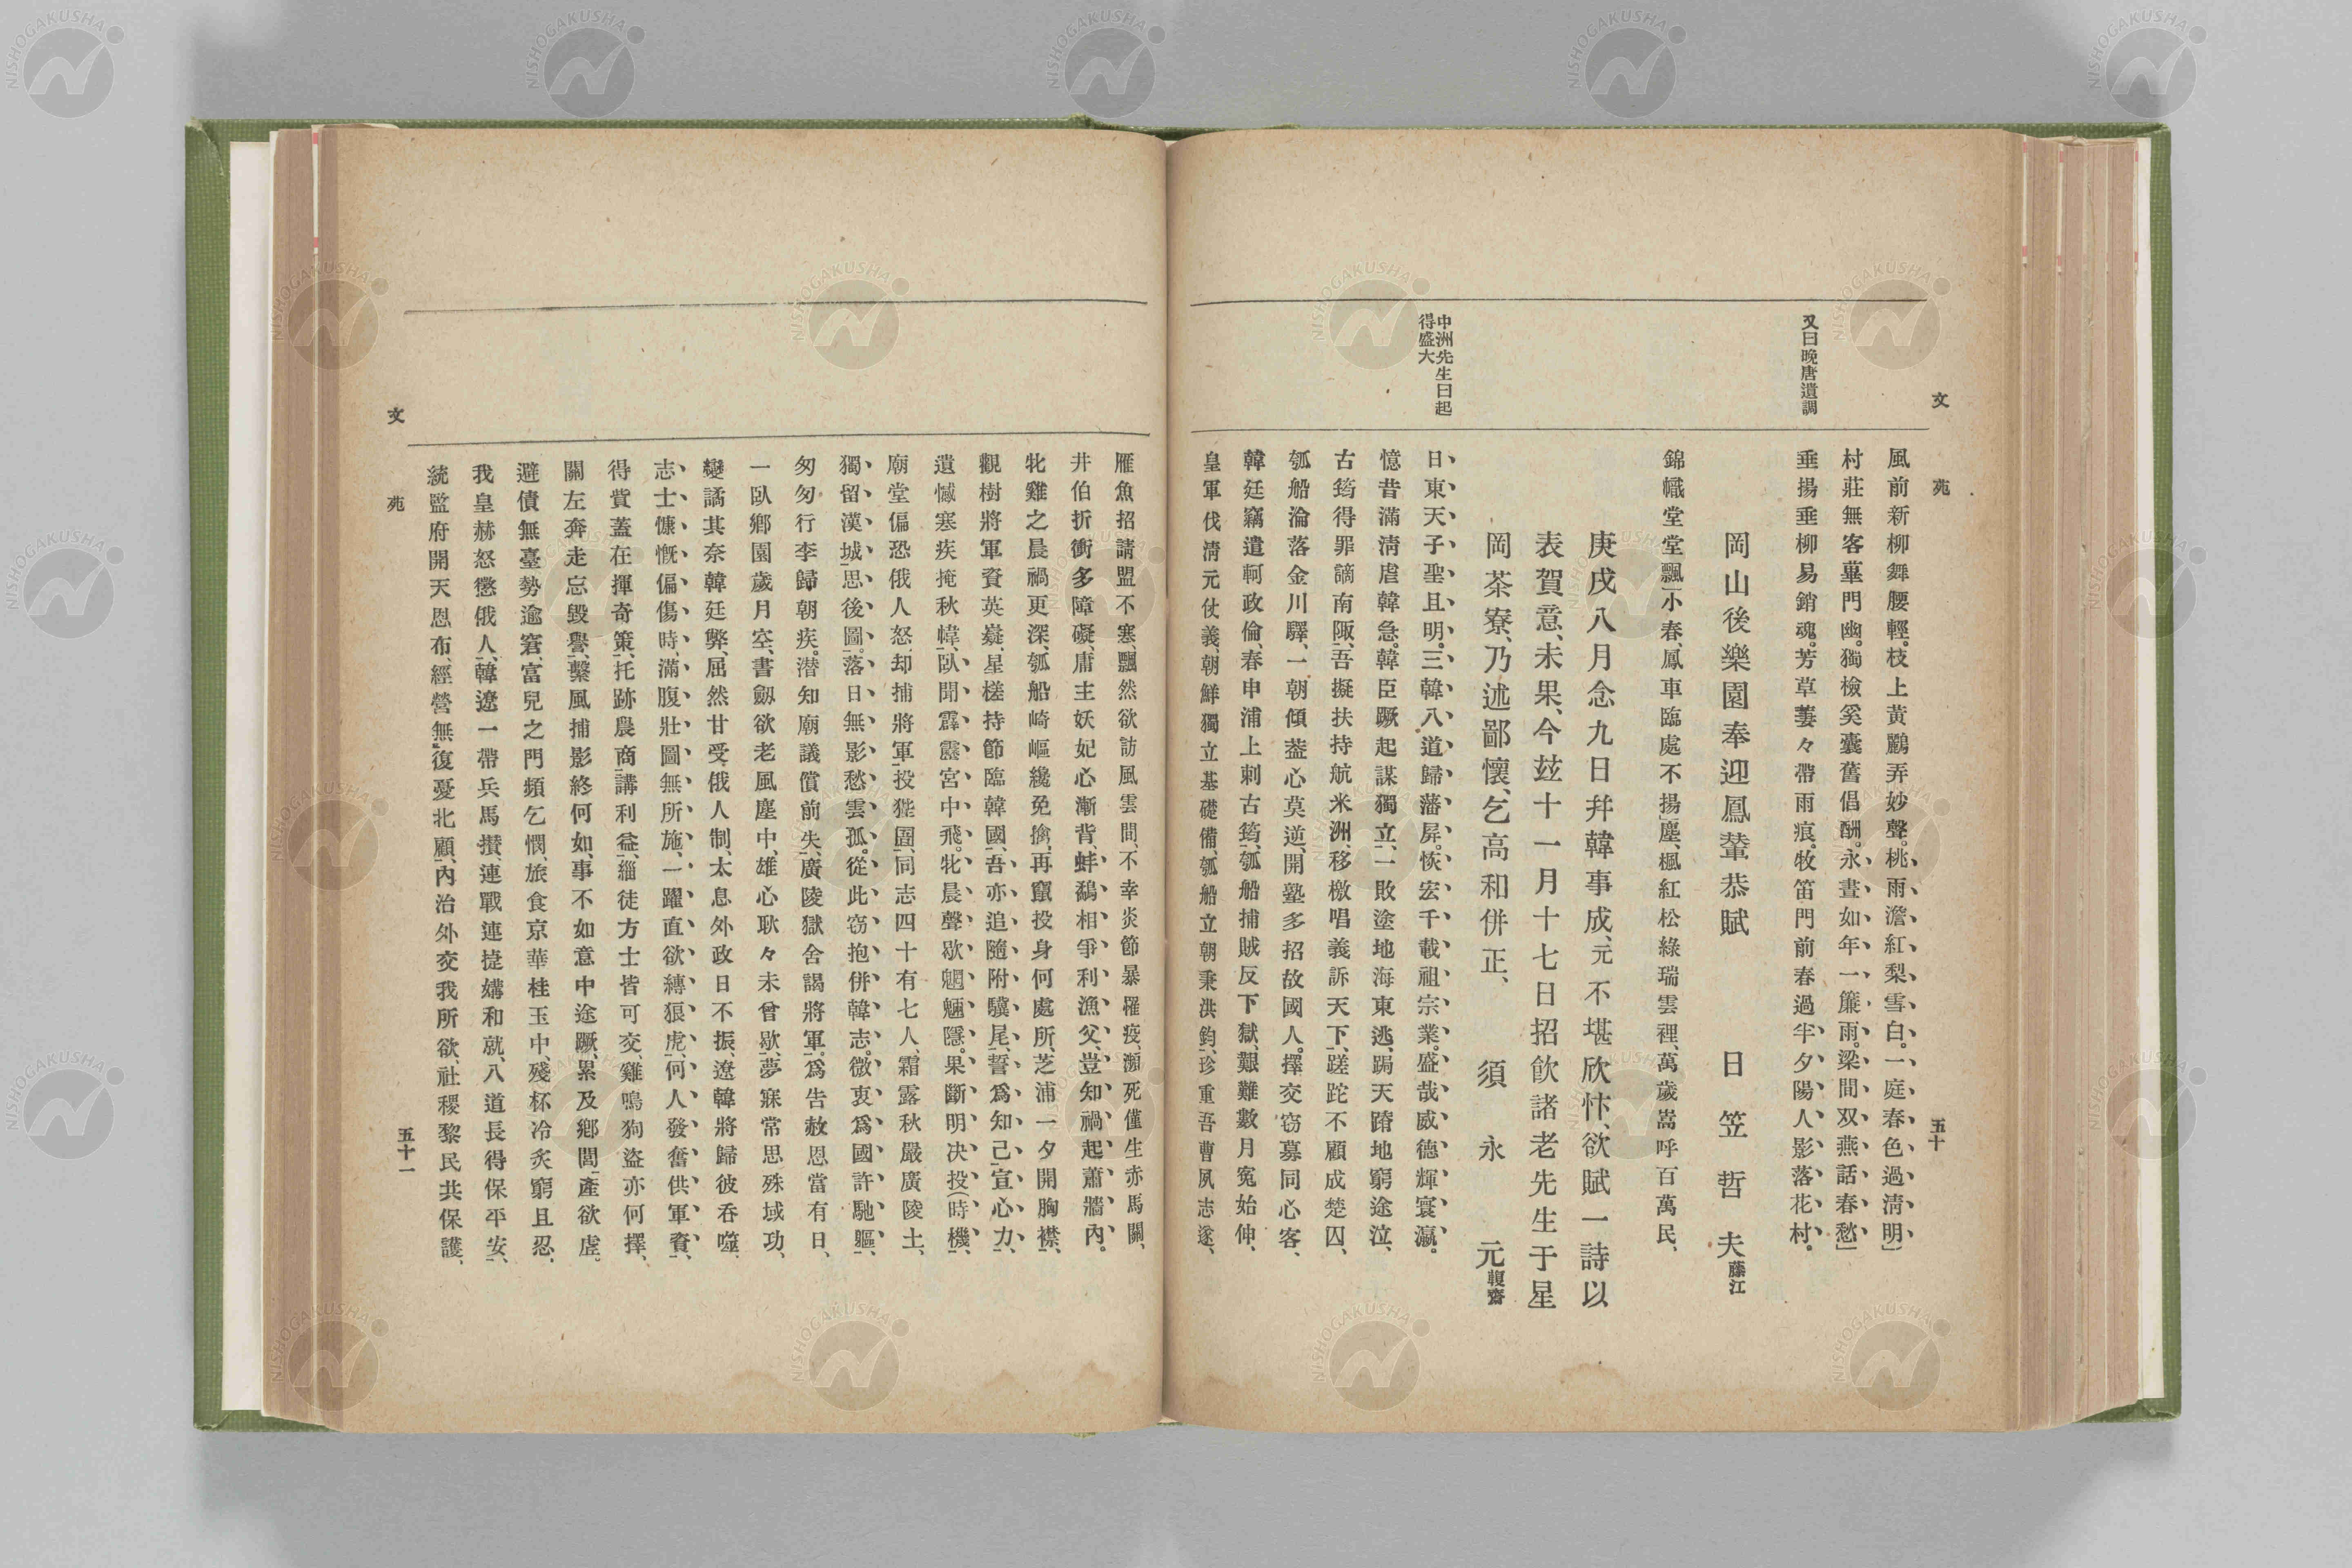 文 苑 五十
風前新柳舞腰輕。枝上黃鸝弄妙聲。桃雨澹紅梨雪白。一庭春色過淸明」
村莊無客蓽門幽。獨檢奚囊舊倡酬。永晝如年一簾雨。梁間双燕話春愁」
又曰晚唐遺調
垂揚垂柳易銷魂。芳草萋々帶雨痕。牧笛門前春過半夕陽人影落花村。
岡山後樂園奉迎鳳輦恭賦 日笠哲夫藤江
錦幟堂堂飄小春、鳳車臨處不揚塵、楓紅松綠瑞雲裡、萬歲嵩呼百萬民、
庚戌八月念九日幷韓事成、元不堪欣忭、欲賦一詩以
表賀意、未果、今玆十一月十七日招飮諸老先生于星
岡茶寮、乃述鄙懷、乞高和併正、 須永元輹齋
中洲先生曰起
得盛大
日東天子聖且明。三韓八道歸藩屏。恢宏千載祖宗業。盛哉威德輝寰瀛。
憶昔滿淸虐韓急。韓臣蹶起謀獨立、一敗塗地海東逃、跼天蹐地窮途泣、
古筠得罪謫南陬、吾擬扶持航米洲、移檄唱義訴天下、蹉跎不顧成楚囚、
瓠船淪落金川驛、一朝傾蓋心莫逆、開塾多招故國人。擇交窃募同心客、
韓廷竊遣軻政倫、春申浦上刺古筠、瓠船捕賊反下獄、艱難數月寃始伸、
皇軍伐淸元仗義、朝鮮獨立基礎備、瓠船立朝秉洪鈞、珍重吾曹夙志遂、
雁魚招請盟不寒、飄然欲訪風雲間、不幸炎節暴罹疫、瀕死僅生赤馬關、
井伯折衝多障礙、庸主妖妃心漸背、蚌鷸相爭利漁父、豈知禍起蕭牆內。
牝雞之晨禍更深、瓠船崎嶇纔免擒、再竄投身何處所、芝浦一夕開胸襟、
觀樹將軍資英嶷、星槎持節臨韓國、吾亦追隨附驥尾、誓爲知己宣心力、
遺憾寒疾掩秋幃、臥聞霹靂宮中飛。牝晨聲歇魍魎隱。果斷明決投(時機、
廟堂偏恐俄人怒、却捕將軍投狴圄、同志四十有七人、霜露秋嚴廣陵土、
獨留漢城思後圖。落日無影愁雲孤。從此窃抱併韓志。微衷爲國許馳驅、
匆匆行李歸朝疾。潜知廟議償前失、廣陵獄舍謁將軍。爲告赦恩當有日、
一臥鄕園歲月空、書劔欲老風塵中、雄心耿々未曾歇、夢寐常思殊域功、
變譎其奈韓廷弊、屈然甘受俄人制、太息外政日不振、遼韓將歸彼呑噬、
志士慷慨偏傷時、滿腹壯圖無所施、一躍直欲縛狼虎、何人發奮供軍資、
得貲蓋在揮奇策、托跡農商講利益、緇徒方士皆可交、雞鳴狗盜亦何擇、
關左奔走忘毀譽、繫風捕影終何如、事不如意中途蹶、累及鄕閭產欲虛。
避債無臺勢逾窘、富兒之門頻乞憫、旅食京華桂玉中、殘杯冷炙窮且忍、
我皇赫怒懲俄人、韓遼一帶兵馬攢、連戰連捷媾和就、八道長得保平安、
統監府開天恩布、經營無復憂北顧、內治外交我所欲、社稷黎民共保護、
文 苑 五十一